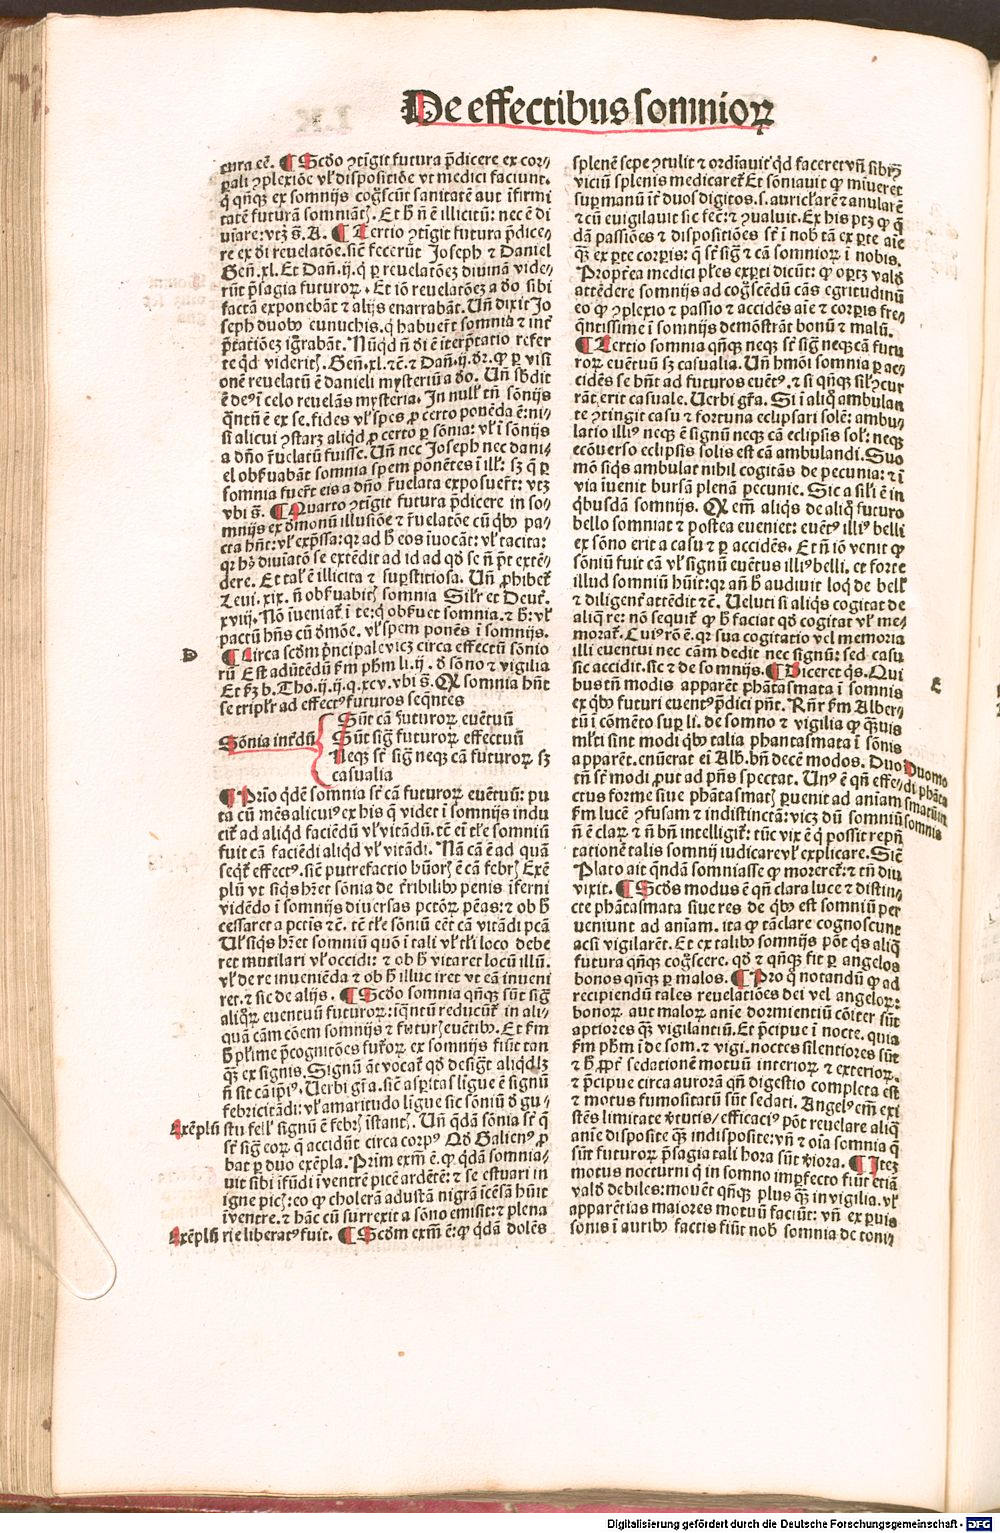 De effectibus somnioꝝ
cura eē. ¶ Scḋo ꝯtīgit futura p̄dicere ex cor-
ꝑali ꝯplexiōe vł dispositiōe vt medici faciunt.
q̇ qn̄qꝫ ex somnijs cog̃scūt sanitatē aut īfirmi
tatē futurā somniātꝭ. Et h̄ nō ē illicitū: nec ē di
uīare: vtꝫ s̄. A. ¶ Tertio ꝯtīgit futura p̄dice-
re ex di reuelatōe. sic̄ fecerūt Joseph ⁊ Daniel
Geñ. xl. Et Dañ. ij. q̇ ꝑ reuelatōeꝫ diuinā vide-
rūt p̄sagia futuroꝝ. Et iō reuelatōeꝫ a do sibi
factā exponebāt ⁊ alijs enarrabāt. Uñ dixit Jo
seph duobꝰ eunuchis. q̇ habuer̄t somnia ⁊ int̄
p̄tatiōeꝫ ig̃rabāt. Nūqd nō di ē iterp̄tatio refer
te qd videritꝭ. Geñ. xl. ⁊c̄. ⁊ Dañ. ij. dr̄. ꝙ ꝑ visi
onē reuelatū ē danieli mysteriū a do. Uñ sb̄dit
ē deꝰ ī celo reuelās mysteria. In null' tñ sōnijs
q̄ntū ē ex se. fides vł spes ꝓ certo ponēda ē: ni-
si alicui ꝯstaret aliqd ꝓ certo ꝑ sōnia: vł ī sōnijs
a dño r̄uelatū fuisse. Uñ nec Joseph nec dani-
el obẜuabāt somnia spem ponētes ī ill': sꝫ q̄ ꝑ
somnia fuer̄t eis a dño r̄uelata exposuer̄t: vtꝫ
vbi s̄. ¶ Quarto ꝯtīgit futura p̄dicere in so-
mnijs ex demonū illusiōe ⁊ r̄uelatōe cū qbꝰ pa-
cta hn̄t: vł exp̄ssa: qꝛ ad h̄ eos īuocāt: vł tacita:
qꝛ hꝰ diuīatō se extēdit ad id ad qd se nō p̄t extē-
dere. Et tal' ē illicita ⁊ suꝑstitiosa. Uñ ꝓhibet̄
Leui. xix. nō obẜuabitꝭ somnia Sil'r et Deut̄.
xviij. Nō īueniat̄ ī te: q̇ obẜuet somnia. ⁊ h̄: vł
pactū hñs cū demōe. vł spem ponēs ī somnijs.
D
¶ Circa scd̄m p̄ncipale vicꝫ circa effectū sōnio
rū Est aduertēdū ẜm pħm li. ij. de sōno ⁊ vigilia
Et ẜꝫ b. Tho. ij. ij. q. xcv. vbi s̄. Qꝙ somnia hn̄t
se tripl'r ad effectꝰ futuros seq̄ntes
Sōnia inr̄dū
Sūt cā futuroꝝ euētuū
Sūt sig̃ futuroꝝ effectuū
Neqꝫ sr̄ sig̃ neqꝫ cā futuroꝝ sꝫ
casualia
¶ Prīo qdē somnia sr̄ cā futuroꝝ euētuū: pu
ta cū mēs alicuiꝰ ex his q̄ videt ī somnijs indu
cit̄ ad aliqd faciēdū vł vitādū. tē ei tle somniū
fuit cā faciēdi aliqd vł vitādi. Nā cā ē ad quā
seqt̄ effectꝰ. sic̄ putrefactio hūorꝭ ē cā febrꝭ Exē
plū vt siqs hr̄et sōnia de tr̄ribilibꝰ penis īferni
vidēdo ī somnijs diuersas pctōꝝ pēas: ⁊ ob h̄
cessaret a pctis ⁊c̄. tē tle sōniū eēt cā vitādi pcā
Uł siqs hr̄et somniū quō ī tali vł tli loco debe
ret mutilari vł occidi: ⁊ ob h̄ vitaret locū illū.
vł de re inueniēda ⁊ ob h̄ illuc iret vt eā inueni
ret. ⁊ sic de alijs. ¶ Scḋo somnia qn̄qꝫ sūt sig̃
aliq̄ꝝ euentuū futuroꝝ: īq̄ntū reducūt̄ in ali-
quā cām cōem somnijs ⁊ futurꝭ euētibꝰ. Et ẜm
h̄ pl'ime p̄cognitōes fut̄oꝝ ex somnijs fiūt tan
qꝫ ex signis. Signū āt vocat̄ qd desig̃t aliqd lꝫ
nō sit cā ipīꝰ. Uerbi gr̄a. sic̄ asꝑitas līgue ē signū
febricitādi: vł amaritudo līgue sic sōniū de gu-
Exēplū stu fell' signū ē febrꝭ īstantꝭ. Uñ qdā sōnia sr̄ q̄
sr̄ sig̃ eoꝝ q̄ accidūt circa corpꝰ Qd Galienꝰ ꝓ
bat ꝑ duo exēpla. Prim̄ exm̄ ē. ꝙ qdā somnia-
uit sibi īfūdi ī ventrē picē ardētē: ⁊ se estuari in
igne picꝭ: eo ꝙ cholerā adustā nigrā īcēsā hūit
ī ventre. ⁊ hāc cū surrexit a sōno emisit: ⁊ plena
Exēplū rie liberatꝰ fuit. ¶ Scd̄m exm̄ ē: ꝙ qdā dolēs
splenē sepe ꝯtulit ⁊ ordīauit qd faceret vñ sibijꝫ
viciū splenis medicaret̄ Et sōniauit ꝙ miueret
suꝑ manū īt̄ duos digitos. s. auriclarē ⁊ anularē
⁊ cū euigilauit sic fec̄: ⁊ ꝯualuit. Ex his ptꝫ ꝙ q̄
dā passiōes ⁊ dispositiōes sr̄ ī nob̄ tā ex ꝑte aīe
qꝫ ex ꝑte corꝑis: q̄ sr̄ sig̃ ⁊ cā somnioꝝ ī nobis.
Propt̄ea medici ples exꝑti dicūt: ꝙ oꝑtꝫ vald
attēdere somnijs ad cog̃scēdū cās egritudinū
eo ꝙ ꝯplexio ⁊ passio ⁊ accidēs aīe ⁊ corꝑis fre-
q̄ntissime ī somnijs demōstrāt bonū ⁊ malū.
¶ Tertio somnia qn̄qꝫ neqꝫ sr̄ sig̃ neqꝫ cā futu
roꝝ euētuū sꝫ casualia. Uñ hmōi somnia ꝑ ac-
cidēs se hn̄t ad futuros euētꝰ. ⁊ si qn̄qꝫ sil' ꝯcur
rāt. erit casuale. Uerbi gr̄a. Si ī aliq̄ ambulan
te ꝯtingit casu ⁊ fortuna eclipsari solē: ambu-
latio illiꝰ neqꝫ ē signū neqꝫ cā eclipsis sol': neqꝫ
ecōuerso eclipsis solis est cā ambulandi. Quo
mō siqs ambulat nihil cogitās de pecunia: ⁊ ī
via īuenit bursā plenā pecunie. Sic a sil'i ē in
qbusdā somnijs. Qꝙ em̄ aliqs de aliq̄ futuro
bello somniat ⁊ postea eueniet: euētꝰ illiꝰ belli
ex sōno erit a casu ⁊ ꝑ accidēs. Et nō iō venit ꝙ
sōniū fuit cā vł signū euētus illiꝰ belli. et forte
illud somniū hūit: qꝛ añ h̄ audiuit loq̄ de bell'
⁊ diligent̄ attēdit ⁊c̄. Ueluti si aliqs cogitat de
aliq̄ re: nō sequit̄ ꝙ h̄ faciat qd cogitat vł me-
morat̄. Cuiꝰ rō ē. qꝛ sua cogitatio vel memoria
illi euentui nec cām dedit nec signū: sed casu
sic accidit. sic ⁊ de somnijs. ¶ Diceret qs. Qui
E
bus tñ modis apparēt phātasmata ī somnis
ex qbꝰ futuri euentꝰ p̄dici pn̄t. Rn̄r ẜm Alber-
tū ī cōmēto suꝑ li. de somno ⁊ vigilia ꝙ q̄uis
ml'ti sint modi qbꝰ talia phantasmata ī sōnis
apparēt. enūerat ei Alb. bñ decē modos. Duo
tñ sr̄ modi ꝓut ad pn̄s spectat. Unꝰ ē qñ effe-
ctus forme siue phātasmatꝭ ꝑuenit ad aniam
ẜm lucē ꝯfusam ⁊ indistinctā: vicꝫ dū somniū
nō ē claꝝ ⁊ nō bñ intelligit̄: tūc vix ē q̇ possit repn̄
tationē talis somnij iudicare vł explicare. Sic̄
Plato ait qn̄dā somniasse ꝙ moreret̄: ⁊ tñ diu
vixit. ¶ Scḋs modus ē qñ clara luce ⁊ distin-
cte phātasmata siue res de qbꝰ est somniū ꝑ
ueniunt ad aniam. ita ꝙ tā clare cognoscunt̄
acsi vigilarēt. Et ex talibꝰ somnijs pōt qs aliq̄
futura qn̄qꝫ cog̃scere. qd ⁊ qn̄qꝫ fit ꝑ angelos
bonos qn̄qꝫ ꝑ malos. ¶ Pro q̄ notandū ꝙ ad
recipiendū tales reuelatiōes dei vel angeloꝝ:
bonoꝝ aut maloꝝ anīe dormientiū cōiter sūt
aptiores qꝫ vigilantiū. Et p̄cipue ī nocte. quia
ẜm pħm ī de som. ⁊ vigi. noctes silentiores sūt
⁊ h̄ ꝓpt̄ sedationē motuū interioꝝ ⁊ exterioꝝ.
⁊ p̄cipue circa aurorā qñ digestio completa est
⁊ motus fumositatū sūt sedati. Angelꝰ em̄ exi
stēs limitate v̄tutis / efficaciꝰ pōt reuelare aliq̄
anīe disposite qꝫ indisposite: vñ ⁊ oīa somnia q̄
sūt futuroꝝ p̄sagia tali hora sūt v̄iora. ¶ Iteꝫ
motus nocturni q̇ in somno imꝑfecto fiūt etiā
vald debiles: mouēt qn̄qꝫ plus qꝫ in vigilia. vł
apparētias maiores motuū faciūt: vñ ex ꝑuis
sonis ī auribꝰ factis fiūt nob̄ somnia de toni-
Duo mo
di phāta
smatū in
somnis
Digitalisierung gefördert durch die Deutsche Forschungsgemeinschaft - DFG